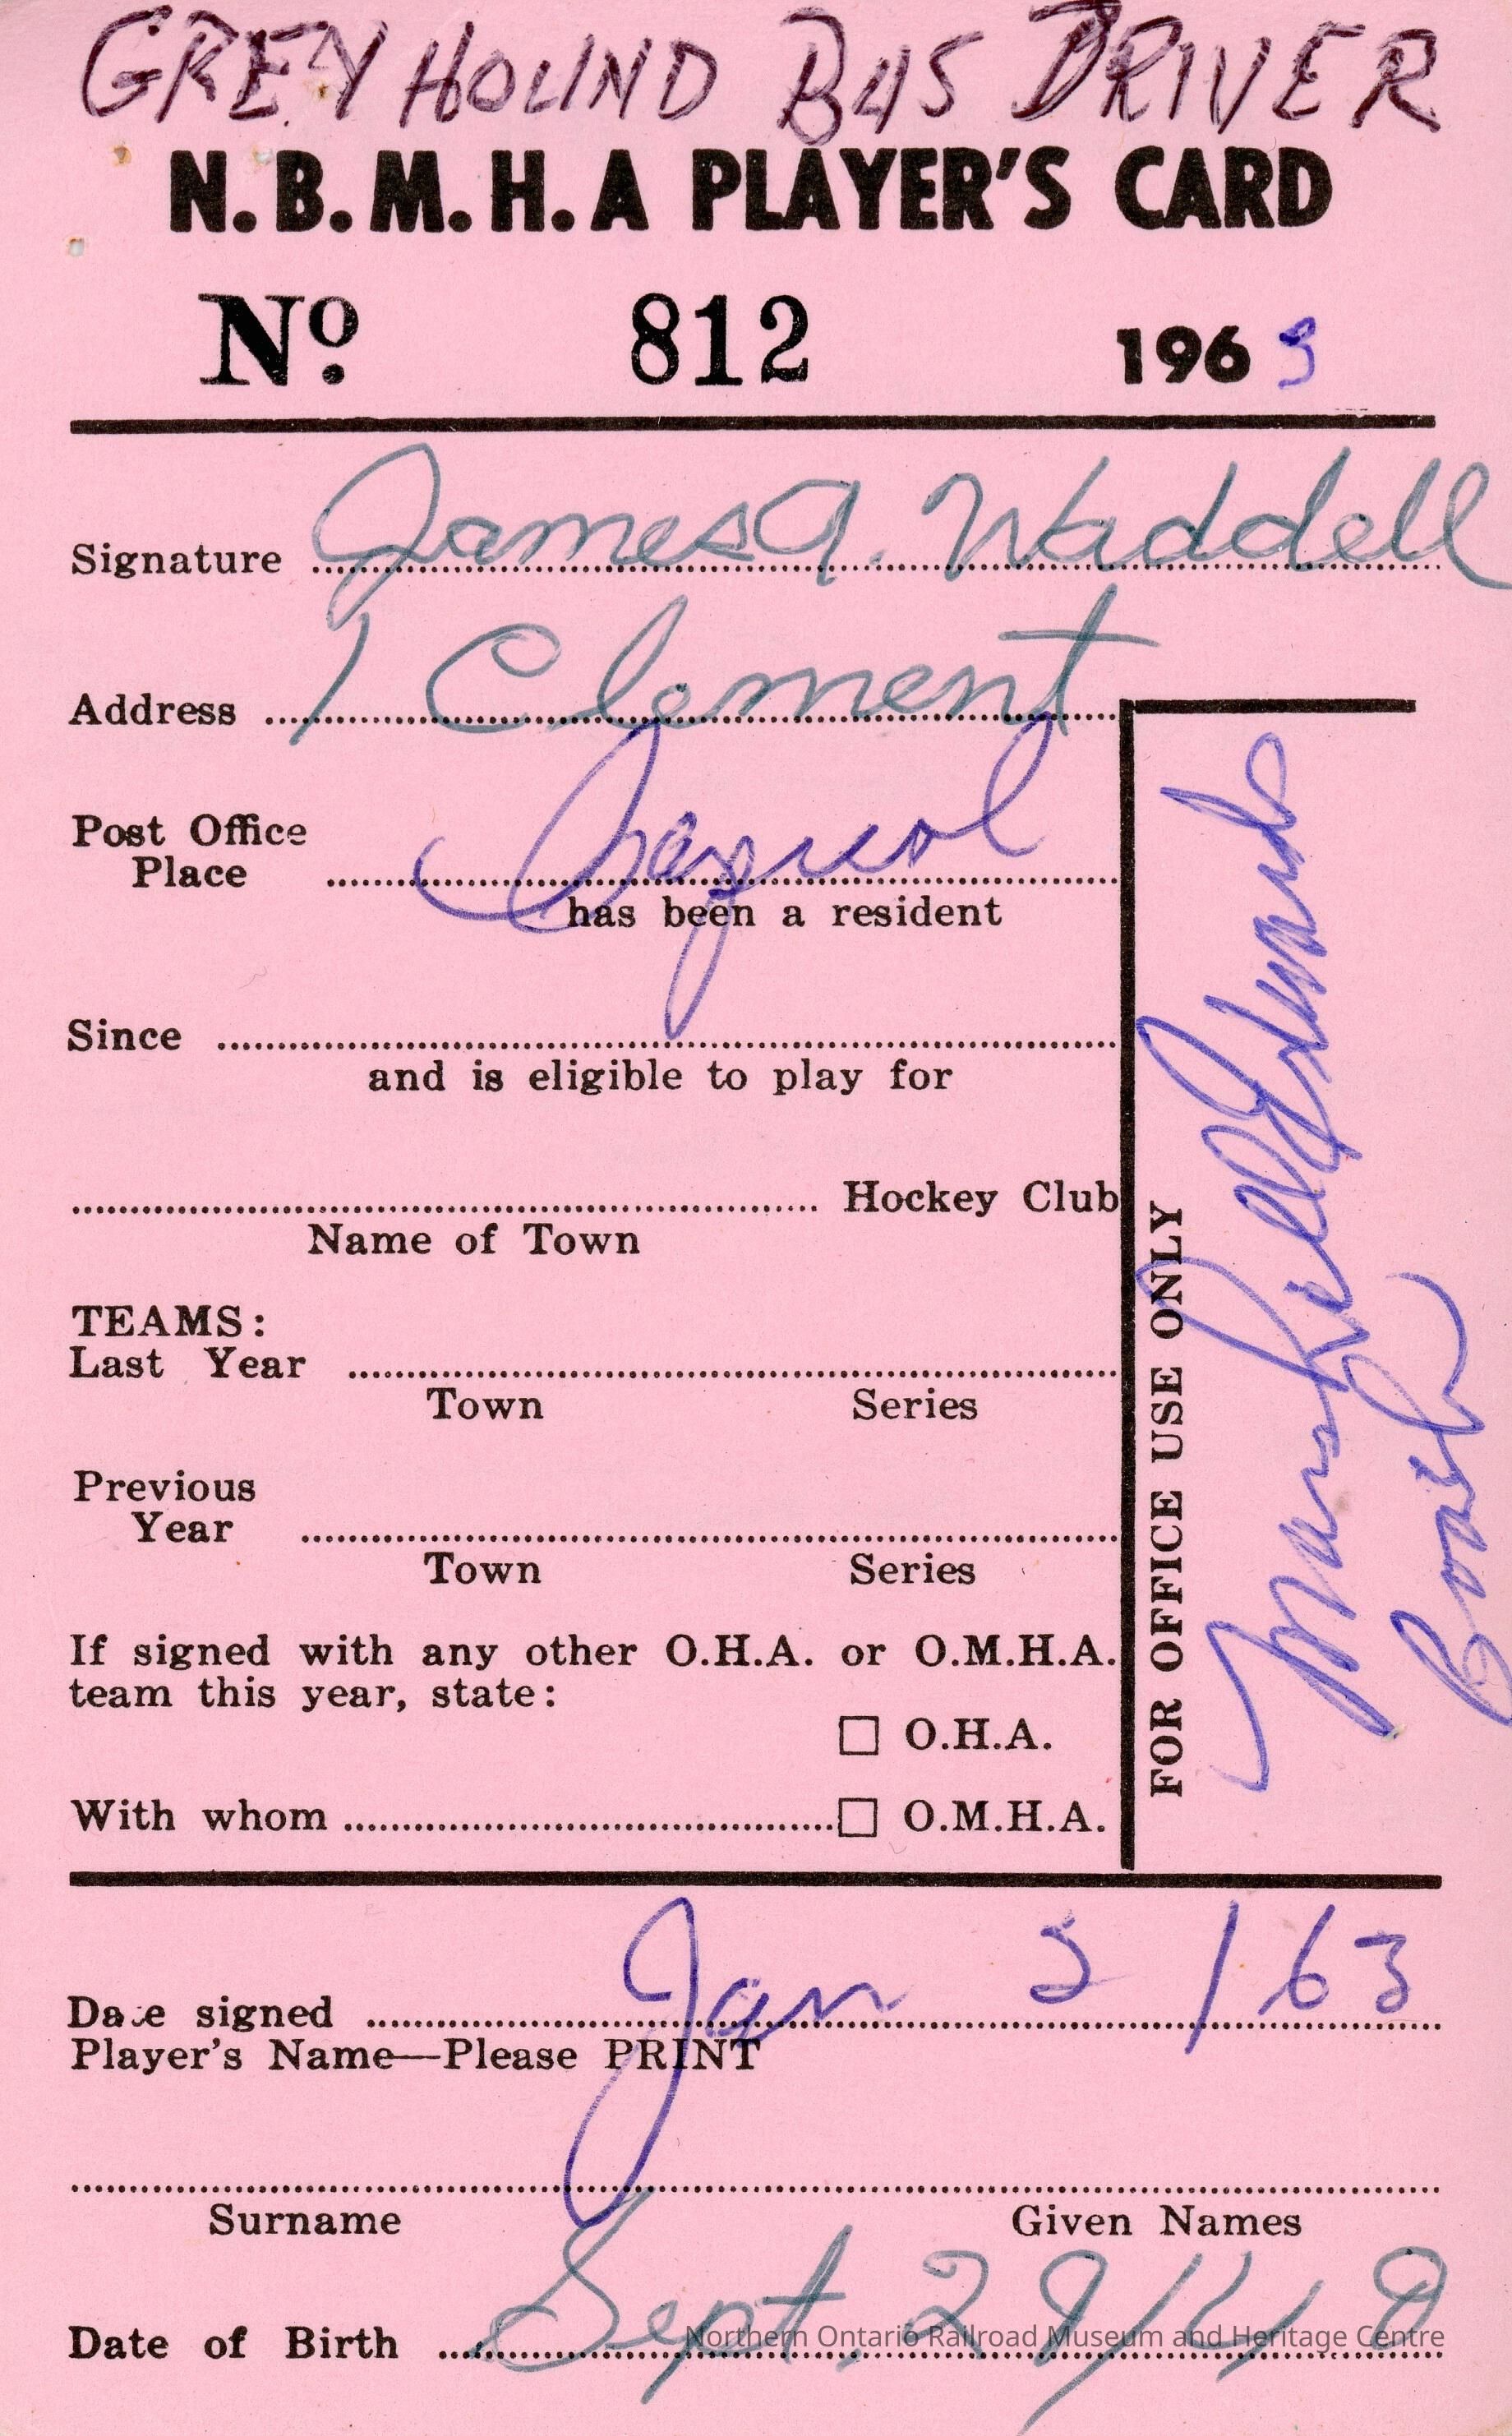 GREYHOUND BUS DRIVER
N.B.M.H.A PLAYER'S CARD
No. 812 1963
Signature James A. Waddell
Address 1 Clement
Post Office
Place Capreol
has been a resident
Since
and is eligible to play for
Hockey Club
Name of Town
TEAMS:
Last Year
Town Series
Previous
Year
Town Series
If signed with any other O.H.A. or O.M.H.A.
team this year, state:
O.H.A.
With whom O.M.H.A.
FOR OFFICE USE ONLY
Edwards
Date signed Jan 5 / 63
Player's Name—Please PRINT
Surname Given Names
Date of Birth Sept, 29/48
Northern Ontario Railroad Museum and Heritage Centre